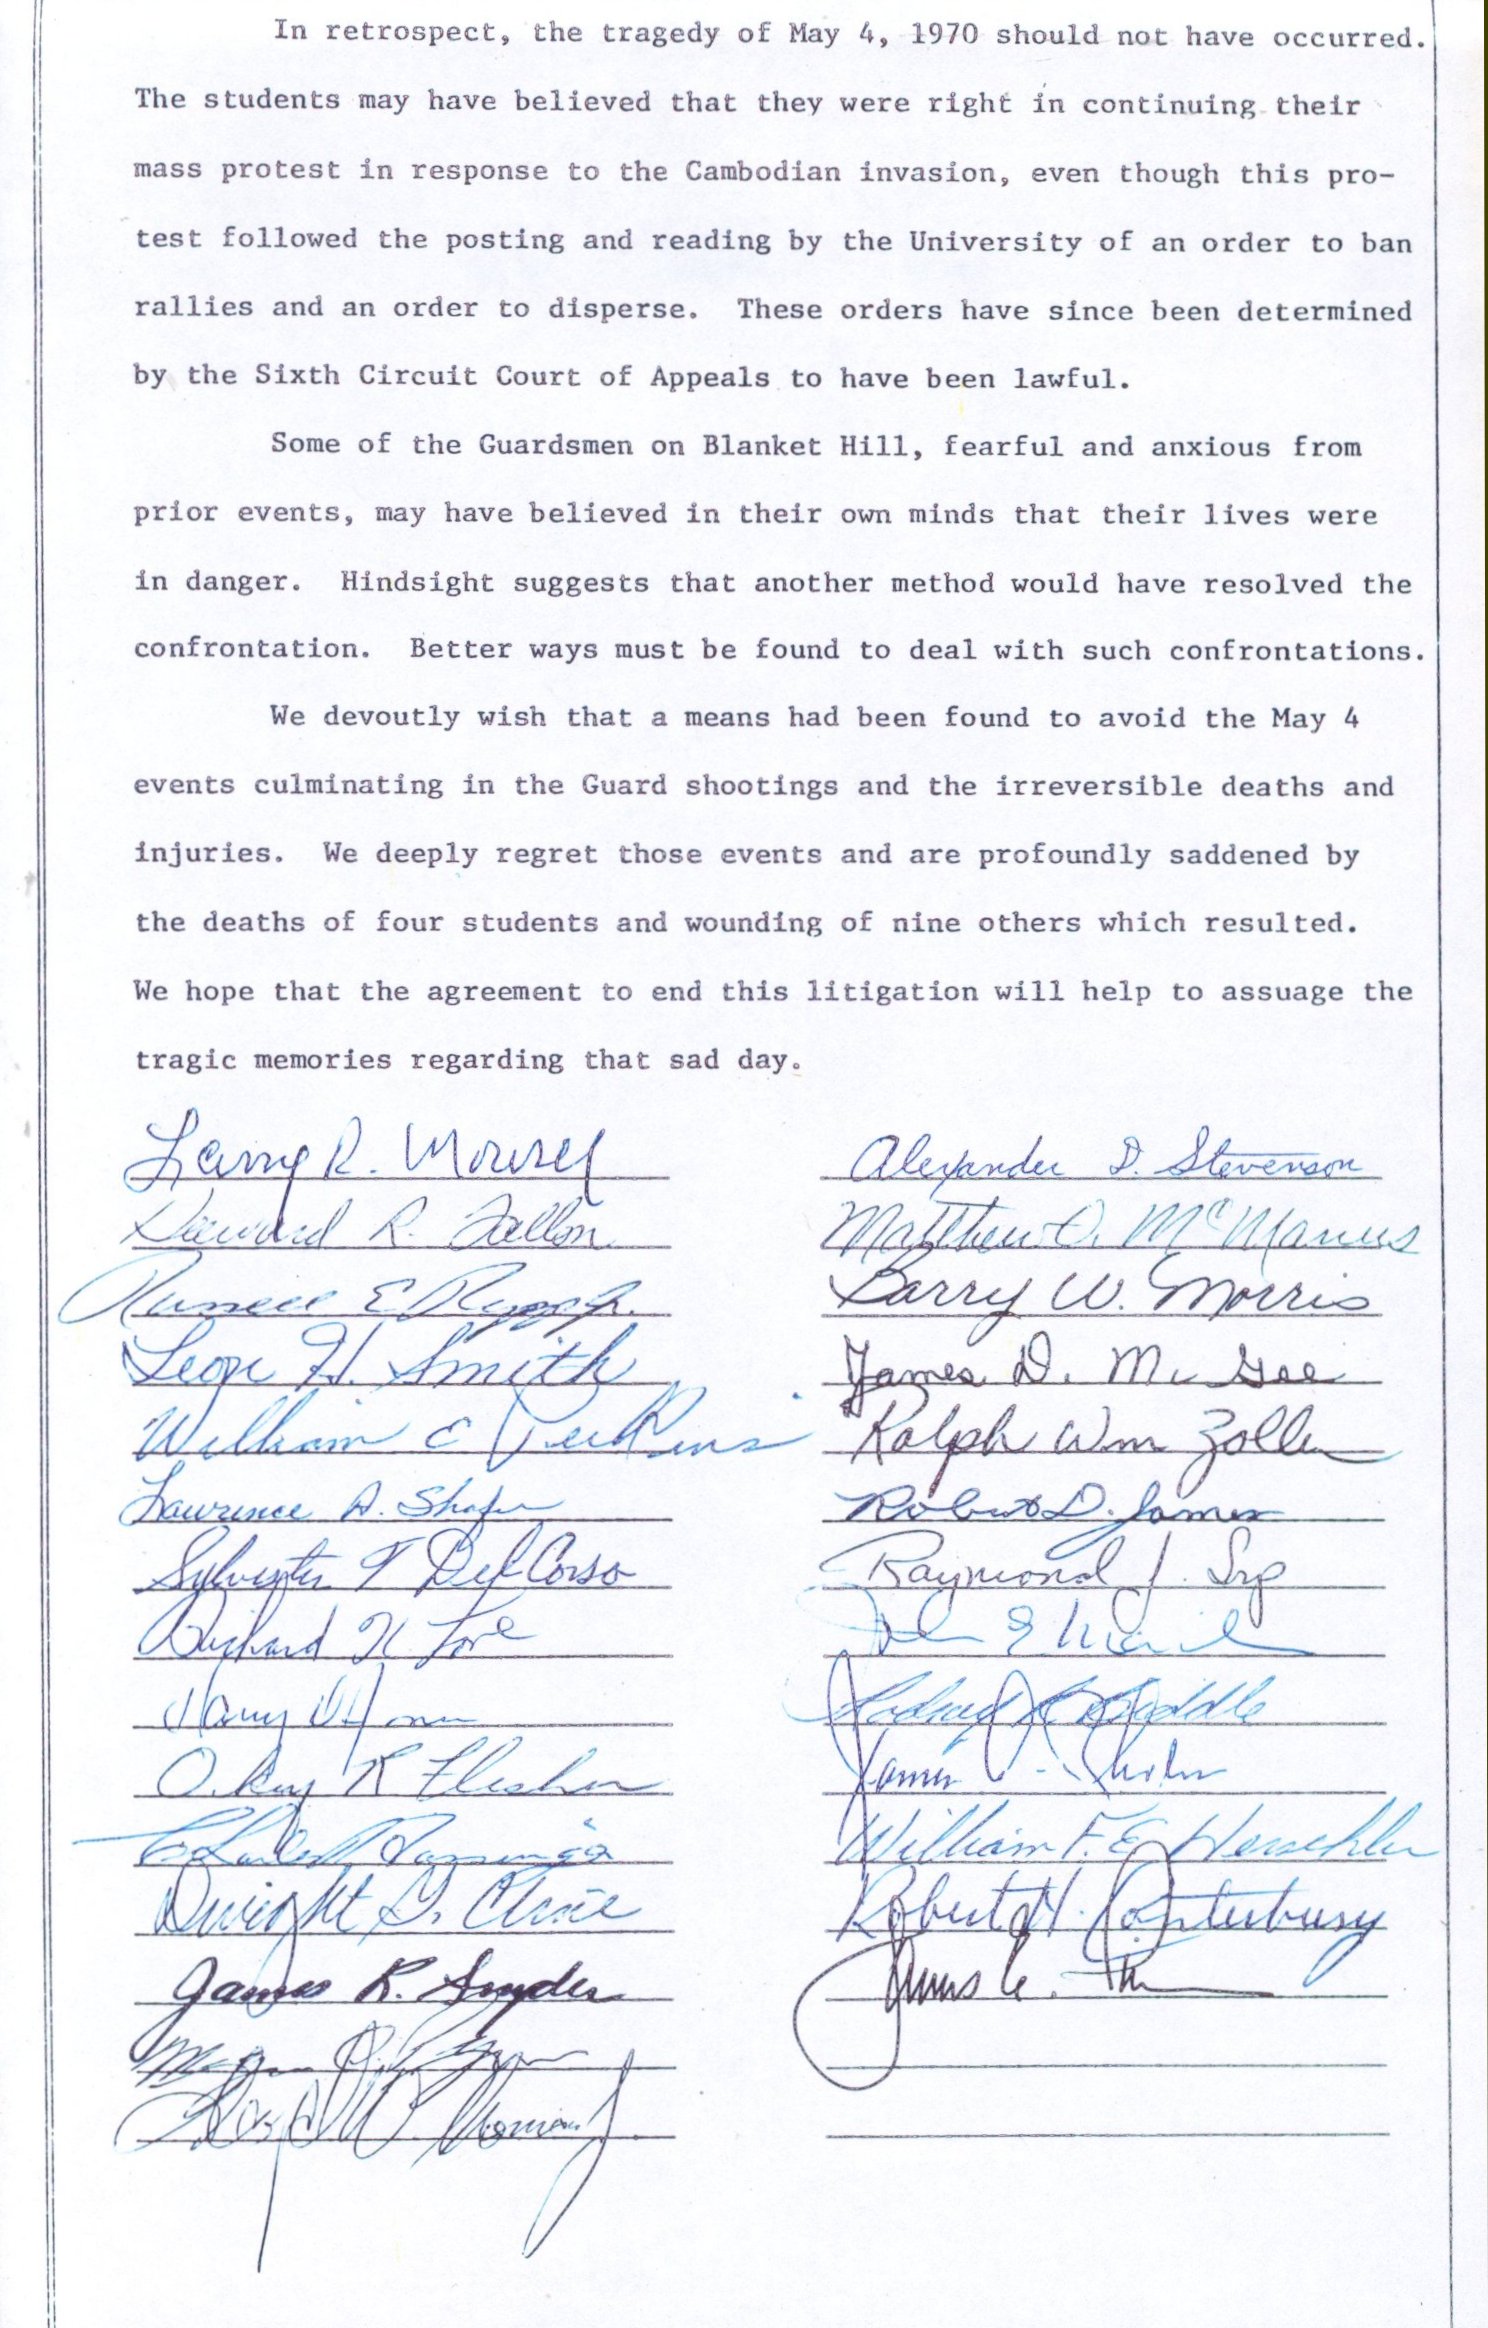 In retrospect, the tragedy of May 4, 1970 should not have occurred.
The students may have believed that they were right in continuing their
mass protest in response to the Cambodian invasion, even though this pro-
test followed the posting and reading by the University of an order to ban
rallies and an order to disperse. These orders have since been determined
by the Sixth Circuit Court of Appeals to have been lawful.
Some of the Guardsmen on Blanket Hill, fearful and anxious from
prior events, may have believed in their own minds that their lives were
in danger. Hindsight suggests that another method would have resolved the
confrontation. Better ways must be found to deal with such confrontations.
We devoutly wish that a means had been found to avoid the May 4
events culminating in the Guard shootings and the irreversible deaths and
injuries. We deeply regret those events and are profoundly saddened by
the deaths of four students and wounding of nine others which resulted.
We hope that the agreement to end this litigation will help to assuage the
tragic memories regarding that sad day.
Alexander D. Stevenson
R. Fallon
Matthew J. McManus
Russell E.
Barry W. Morris
Leon H. Smith
James D. McGee
William E Perkins
Ralph Wm Zoller
Lawrence A. Shafer
Robert D. James
Sylvester T Del Corso
Raymond J. Srp
Richard K Love
James
William F. E. Herschler
Dwight G. Cline
Robert H. Canterbury
James R. Snyder